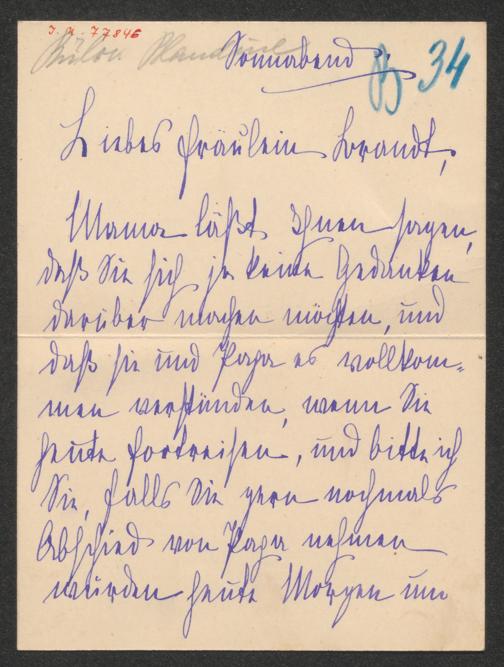 I. N. 77846
Bülow Blandine
Sonnabend.
34
Liebes Fräulein Brandt,
Mama läßt Ihnen sagen,
daß Sie sich ja keine Gedanken
darüber machen möchten, und
daß sie und Papa es vollkom-
men verständen, wenn Sie
heute fortreisen, und bitte ich
Sie, falls Sie gern nochmals
Abschied von Papa nehmen
würden heute Morgen um